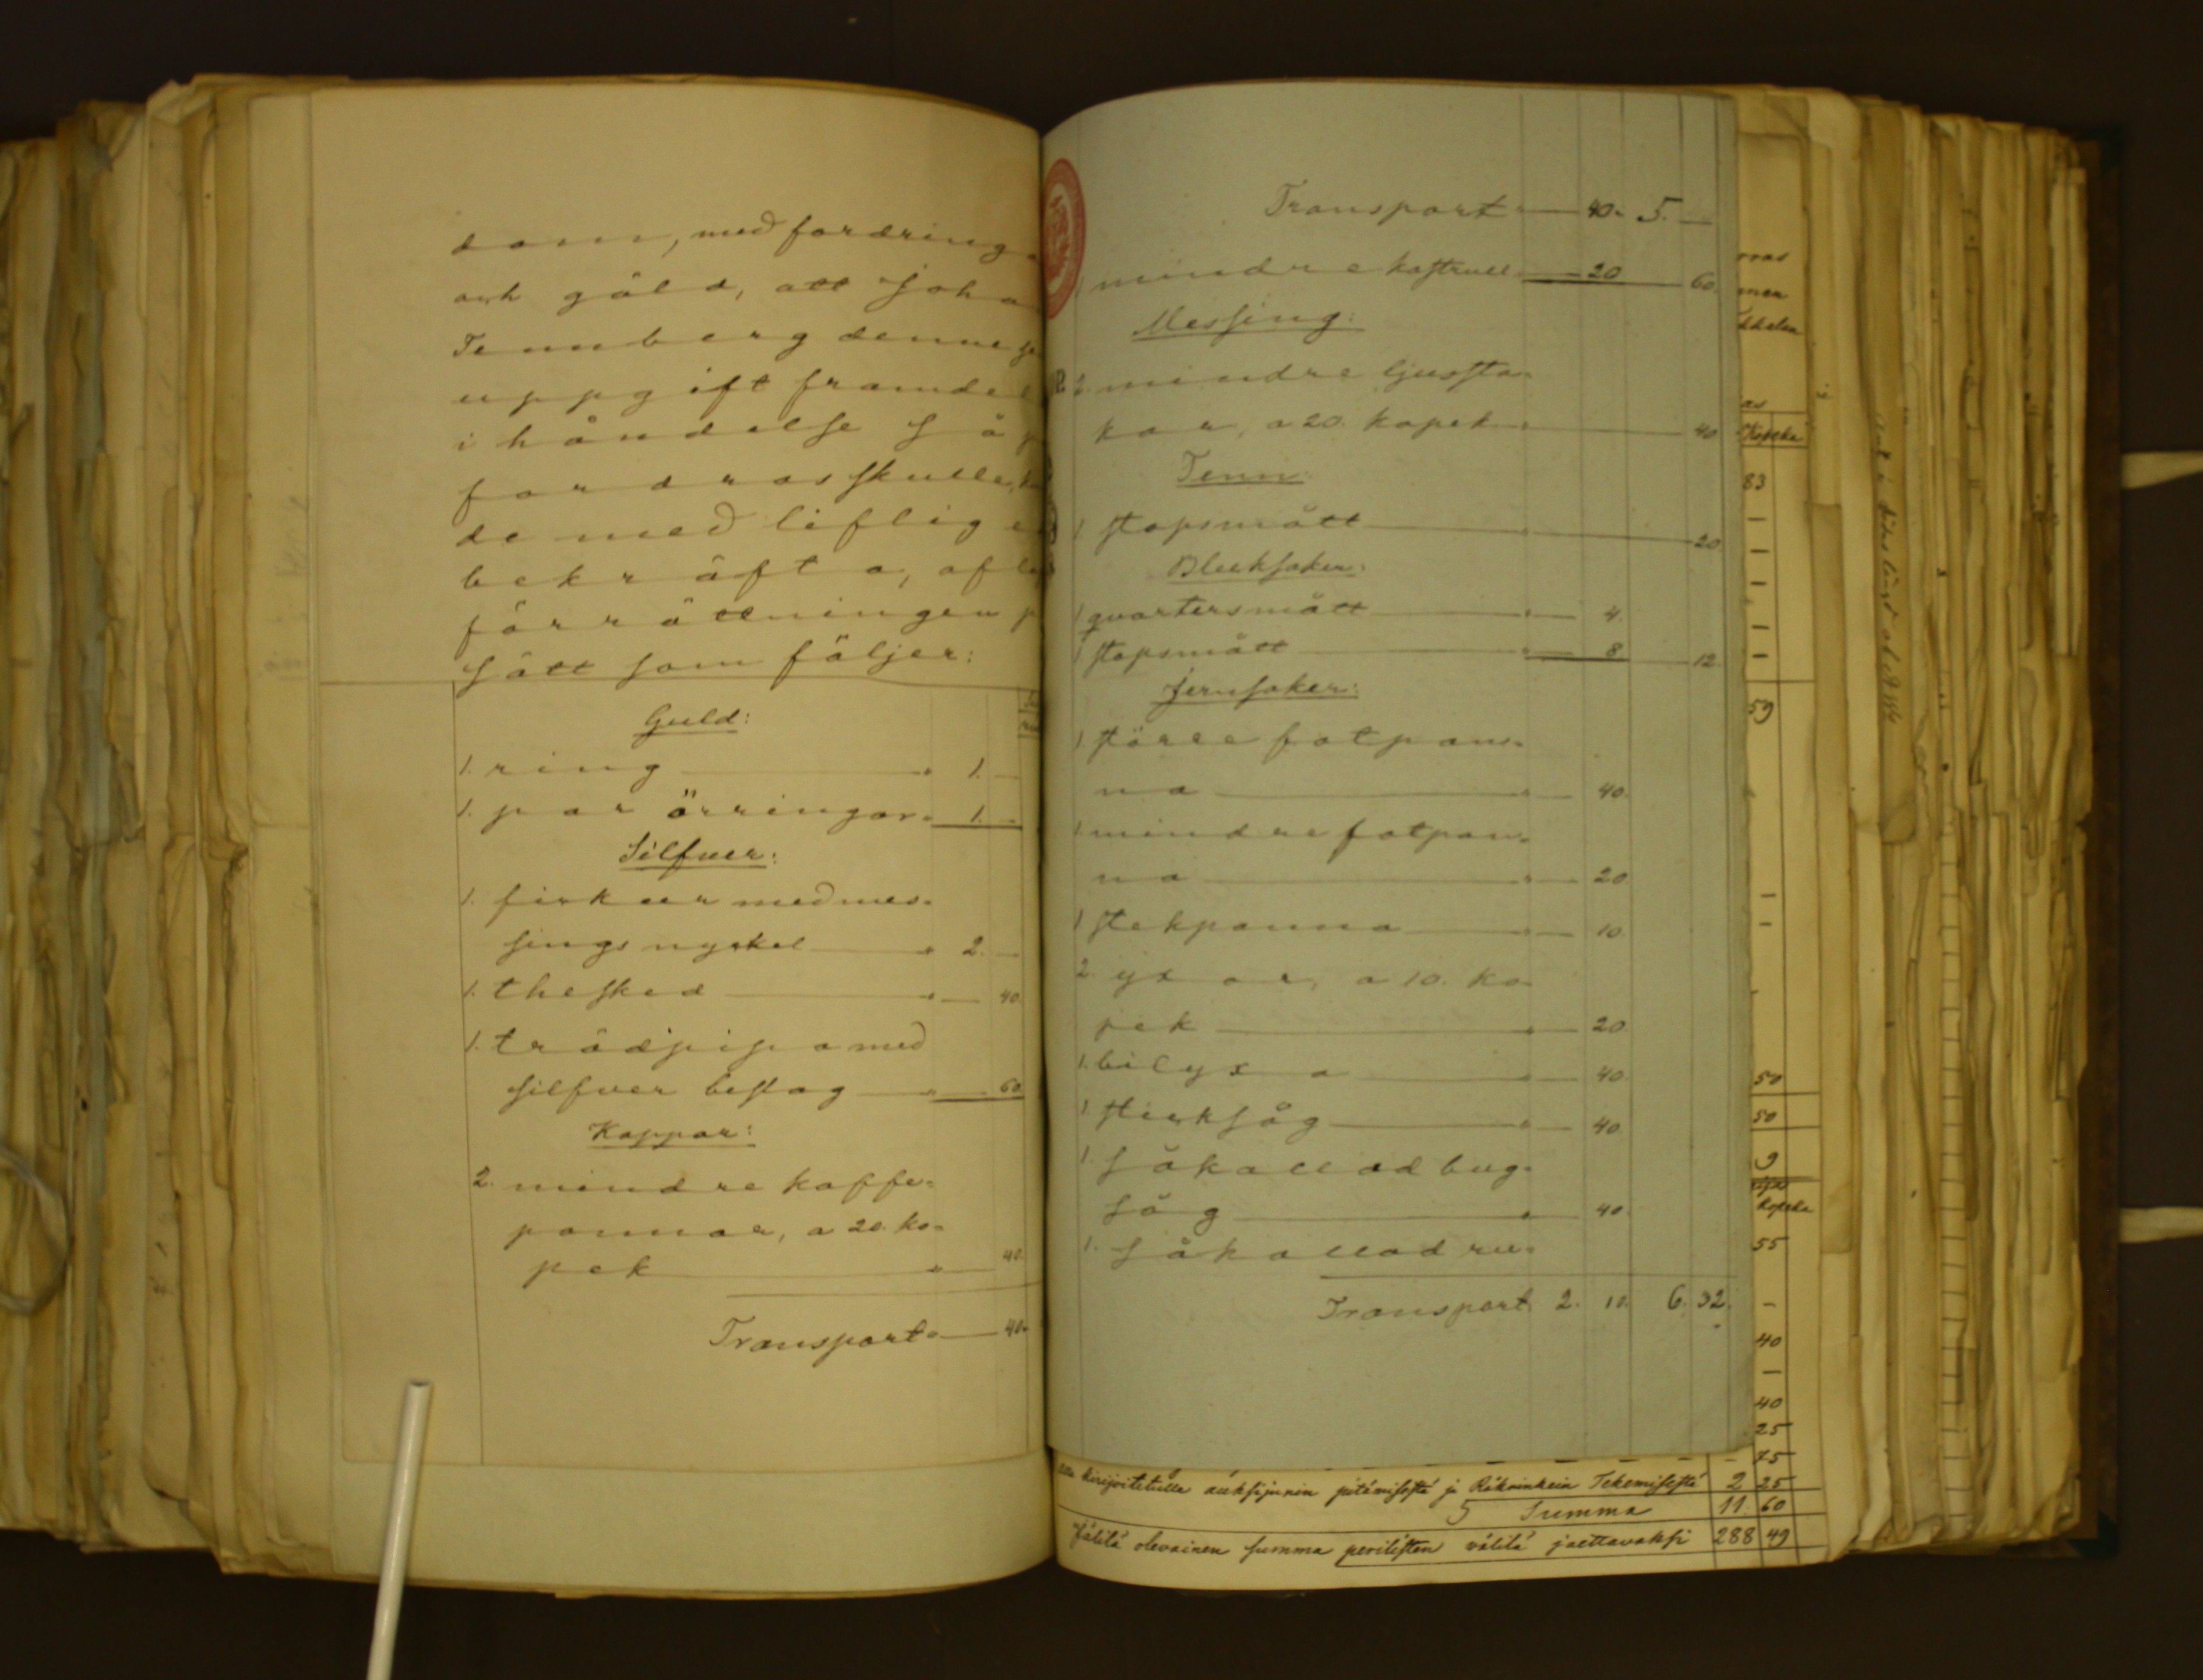 dom, med fordring
och gäld, att Joha
Tennberg denne
uppgift framde
i händelse så
fordras skulle,
de med liflig
bekräfta, af
förrättningen
sätt som följer:
Guld:
1. ring " 1. —
1. par örringar " 1. —
Silfver:
1. fickur med mes-
sings nyckel " 2. —
1. thesked " — 40.
1. trädpipa med
silfver beslag " — 60.
Koppar:
2. mindre kaffe-
pannor, a 20. ko-
pek " — 40.
Transport " — 40.
Transport " — 40. 5. —
1 mindre kastrull — 20 — 60.
Messing:
2. mindre ljussta-
kar, a 20. kopek " — 40
Tenn:
1 stopsmått " — 20
Bleeksaker:
1 qvartersmått " — 4.
1 stopsmått " — 8. — 12.
Jernsaker:
1 större fotpan-
na " — 40.
1 mindre fotpan-
na " — 20
1 stekpanna " — 10.
2. yxor, a 10. ko-
pek " — 20
1. bilyxa " — 40.
1. sticksåg " — 40.
1. så kallad bug-
såg " — 40.
1. så kallad ru-
Transport 2. 10. 6. 32.
kirijoitetulle auksjunin pitämisestä ja Räkninkein Tekemisestä 2 25
5 Summa 11. 60
Jälilä olevainen summa perilisten välilä jaettavaksi 288 49
Kopeka
83
59
50
50
9
Kopeka
55
40
40
25
75